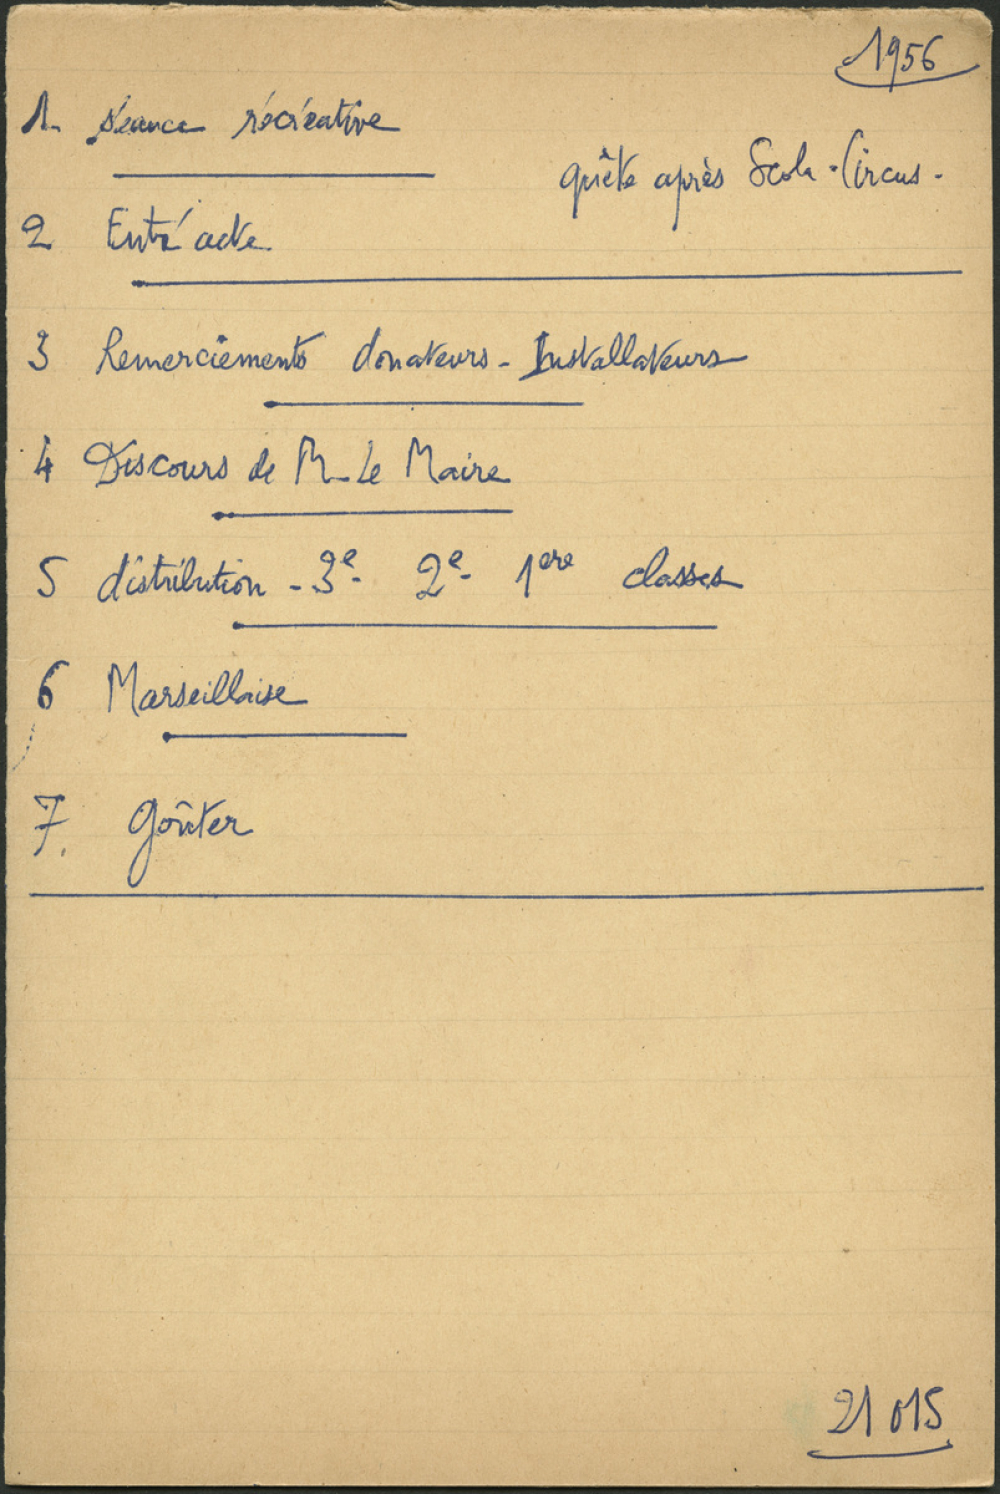 1956
1. Séance récréative
quête après Scola-Circus.
2 Entr'acte
3 Remerciements donateurs - Installateurs
4 Discours de M. Le Maire
5 distribution - 3e. 2e. 1ere classes
6 Marseillaise
7. Goûter
21 015